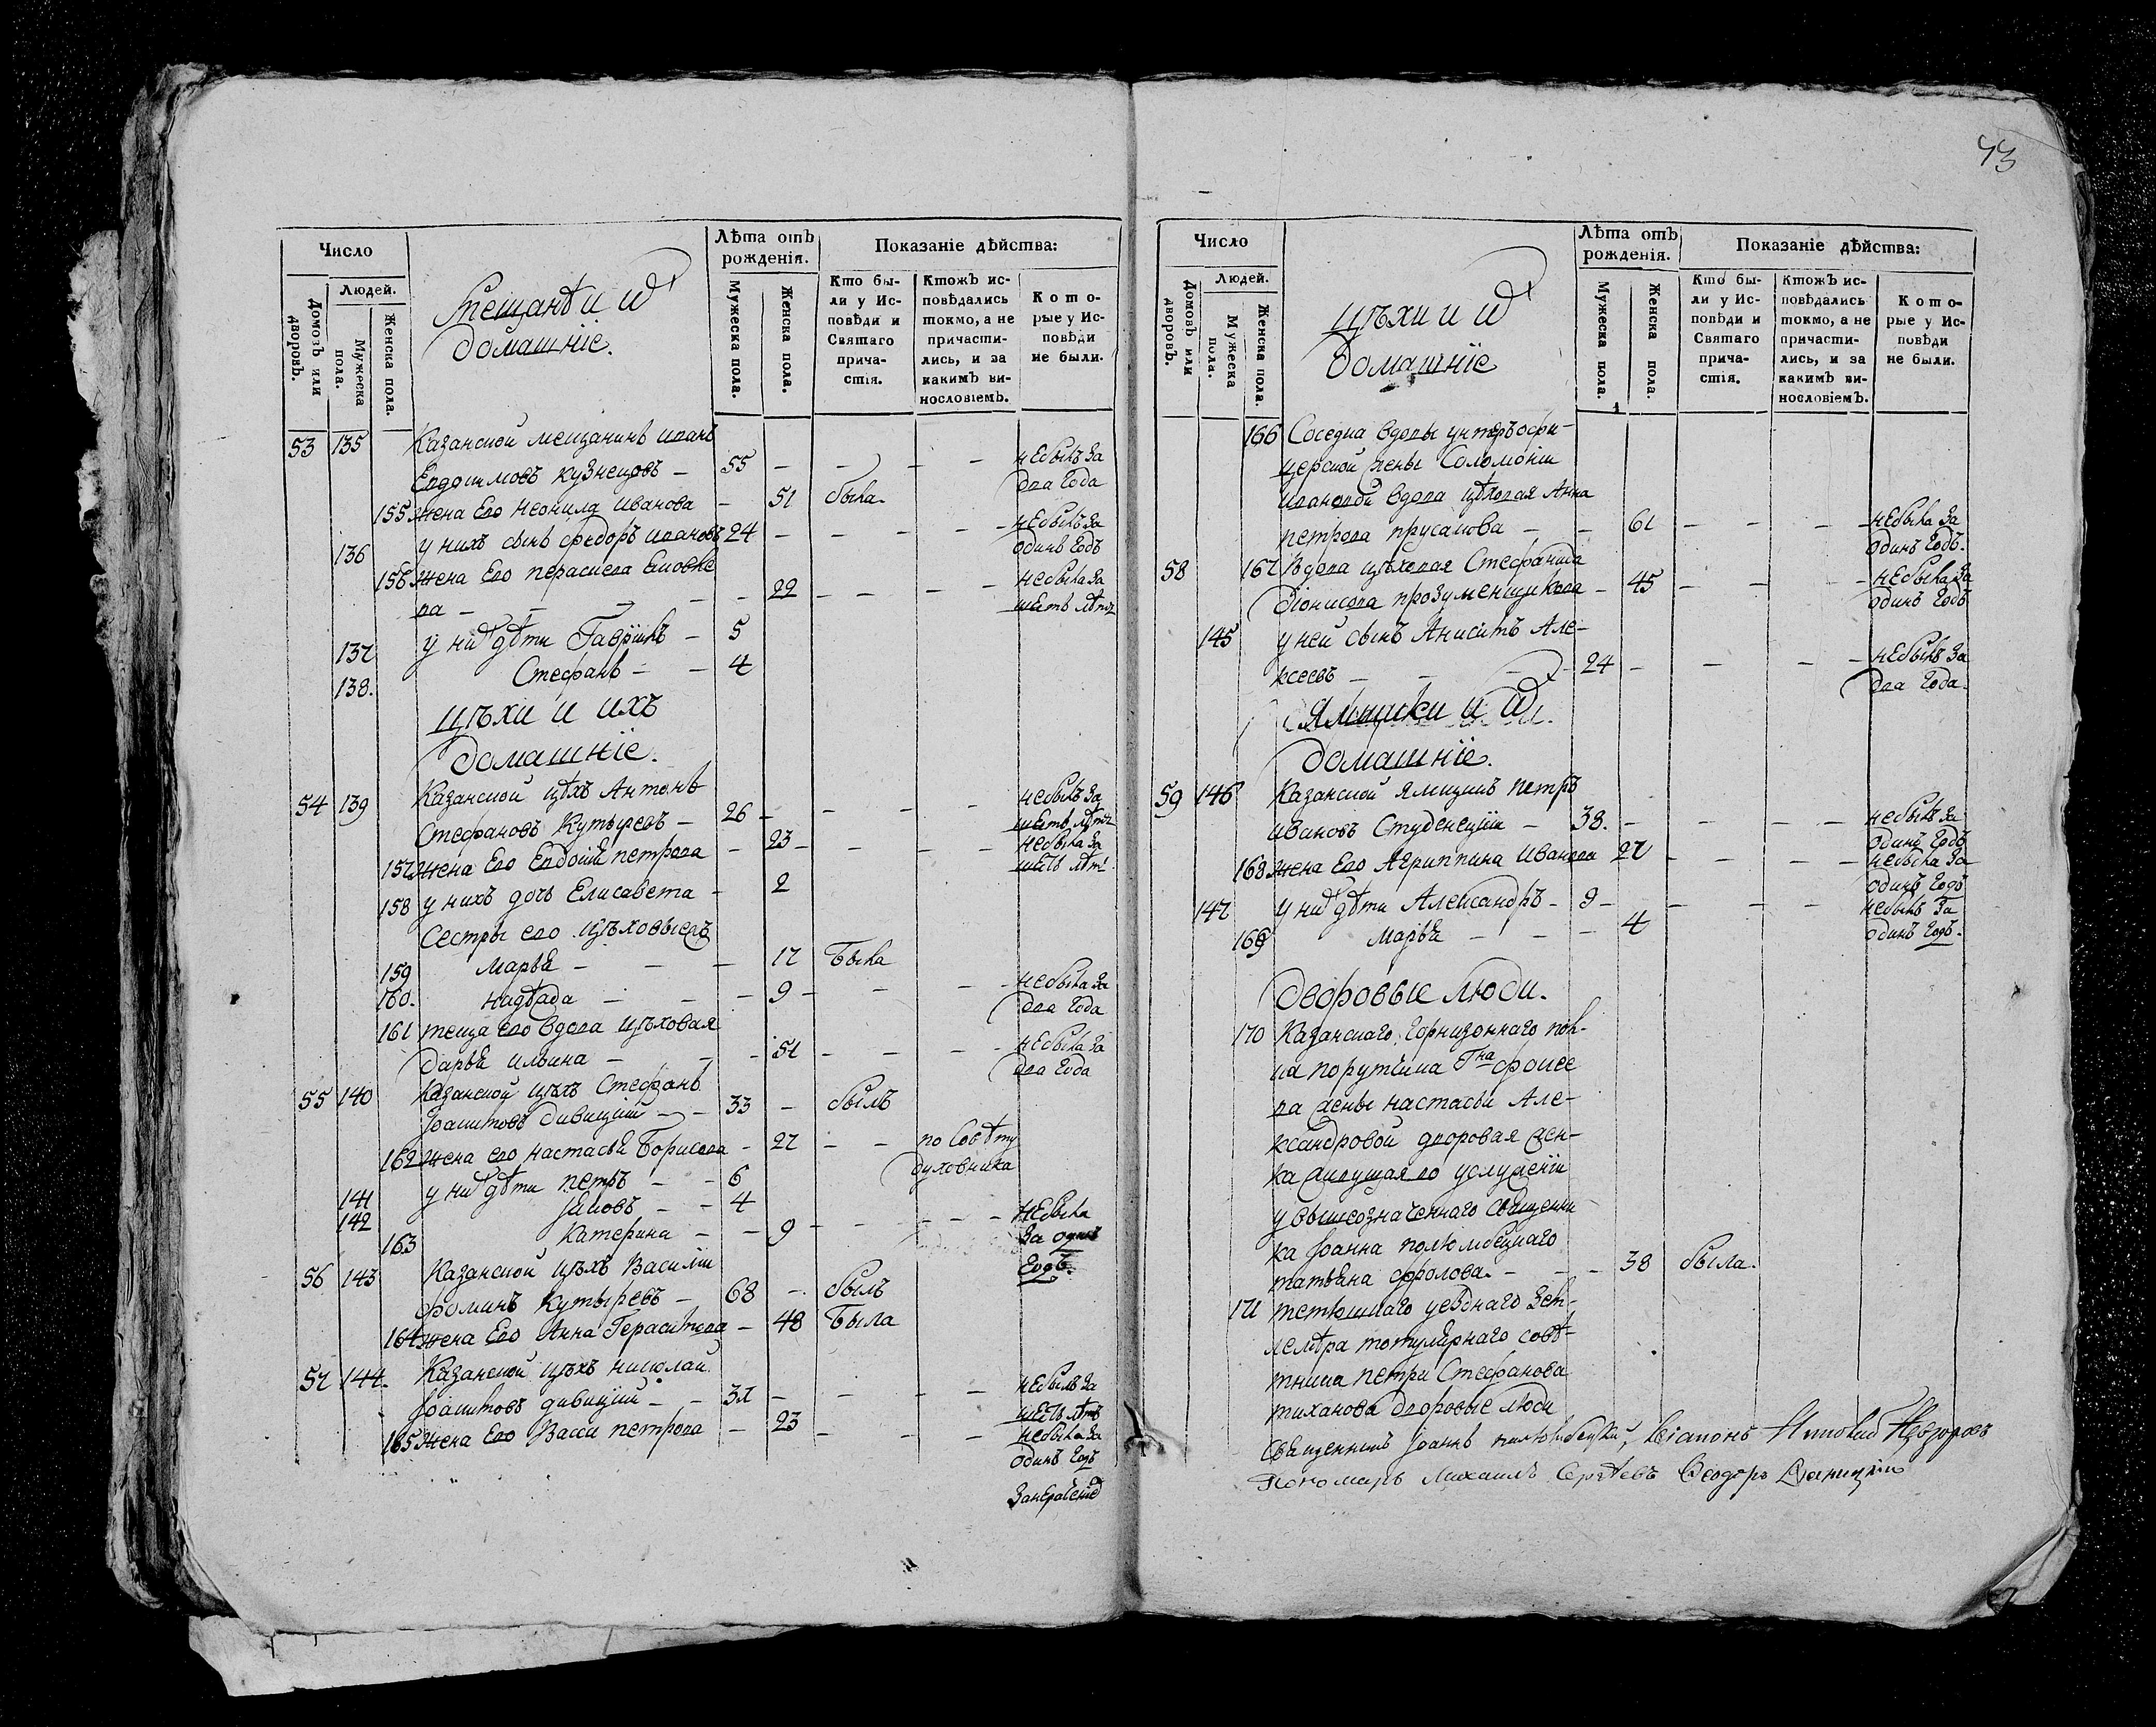 43
Число
Людей.
Домовъ или дворовъ.
Мужеска пола.
Женска пола.
Мещанѣ и ихъ
домашніе.
Лѣта отъ рожденія.
Мужеска пола.
Женска пола.
Показаніе дѣйства:
Кто были у Исповѣди и Святаго причастія.
Ктожъ исповѣдались токмо, а не причастились, и за какимъ винословіемъ.
Которые у Исповѣди не были.
53 135 Казанской мещанинъ иванъ
Евдокимовъ кузнецовъ – 55 – – – – небылъ за
два года
155 жена Его неонила иванова – 51 была.
136 у нихъ сынъ федоръ ивановъ 24 – – – – небылъ за
одинъ годъ
156 жена Его параскева
ва – – – – 22 – – – – небыла за
шесть лѣтъ
137 у нихъ дѣти Гаврiилъ – 5
138. Стефанъ – – 4
цѣхи и ихъ
домашніе.
54 139 Казанской цѣхъ Антонъ
Стефановъ Кутыревъ – 26 – – – – небылъ за
шесть лѣтъ
157 жена Его Евдокія петрова – 23 – – – – небыла за
шесть лѣтъ
158 у нихъ дочь Елисавета – 2
Сестры его цѣховыежъ
159 марья – – – 17 Была
160. надѣжда – – – 9 – – – – небыла за
два года
161 теща его вдова цѣховая
дарья ильина – – – 51 – – – – небыла за
два года
55 140 Казанской цѣхъ Стефанъ
Іоакимовъ дивицкiй – – 33 – былъ
162 жена его настасья Борисова – 27 – – по совѣту
духовника
141 у нихъ дѣти петръ – – 6
142 Іаковъ – – 4
163 катерина – – 9 – – – – небыла
за одинъ
годъ.
56 143 Казанской цѣхъ Василiй
фоминъ кутыревъ – 68 – былъ
164 жена Его Анна Герасимова – 48 Была
57 144. Казанской цѣхъ николай
Іоакимовъ дивицкiй – – 31 – – – – небылъ за
шесть лѣтъ
165 жена Его Васса петрова – 23 – – – небыла за
одинъ годъ
Число
Людей.
Домовъ или дворовъ.
Мужеска пола.
Женска пола.
цѣхи и ихъ
домашніе
Лѣта отъ рожденія.
Мужеска пола.
Женска пола.
Показаніе дѣйства:
Кто были у Исповѣди и Святаго причастія.
Ктожъ исповѣдались токмо, а не причастились, и за какимъ винословіемъ.
Которые у Исповѣди не были.
166 Соседка вдовы унтеръ офи-
церской жены Соломонiи
ивановой вдова цѣховая Анна
петрова прусакова – – 61 – – – – небыла за
одинъ годъ.
58 167 вдова цѣховая Стефанида
діонисова прозуменщикова – 45 – – – небыла за
одинъ годъ
145 у ней сынъ Аникитъ Але-
ксеевъ – – – – 24 – – – – небылъ за
два года.
Ямщики и ихъ
домашніе.
59 146 Казанской ямщикъ петръ
ивановъ Студенецкiй – 38. – – – – небылъ за
одинъ годъ
168 жена Его Агриппина иванова 27 – – – – небыла за
одинъ годъ
147 у нихъ дѣти Александръ – 9 – – – – небылъ за
одинъ годъ.
169 марья – – – 4
дворовые люди.
170 Казанскаго гарнизоннаго пол-
ка порутчика Гна
ва жены настасьи Але-
ксандровой дворовая жен-
ка живущая во услуженiи
у вышеозначеннаго священни-
ка Іоанна
татьяна фролова. – – – 38 была.
171 тетюшкаго уезднаго Зем-
лемѣра титулярнаго совѣ-
тника петра Стефанова
тиханова дворовые люди
Священникъ Іоаннъ
Пономарь Михаилъ Сергѣевъ Ѳеодоръ